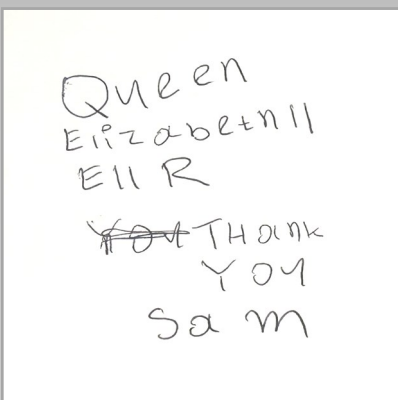 Queen
Elizabeth II
EIIR
You THank
YOU
Sam